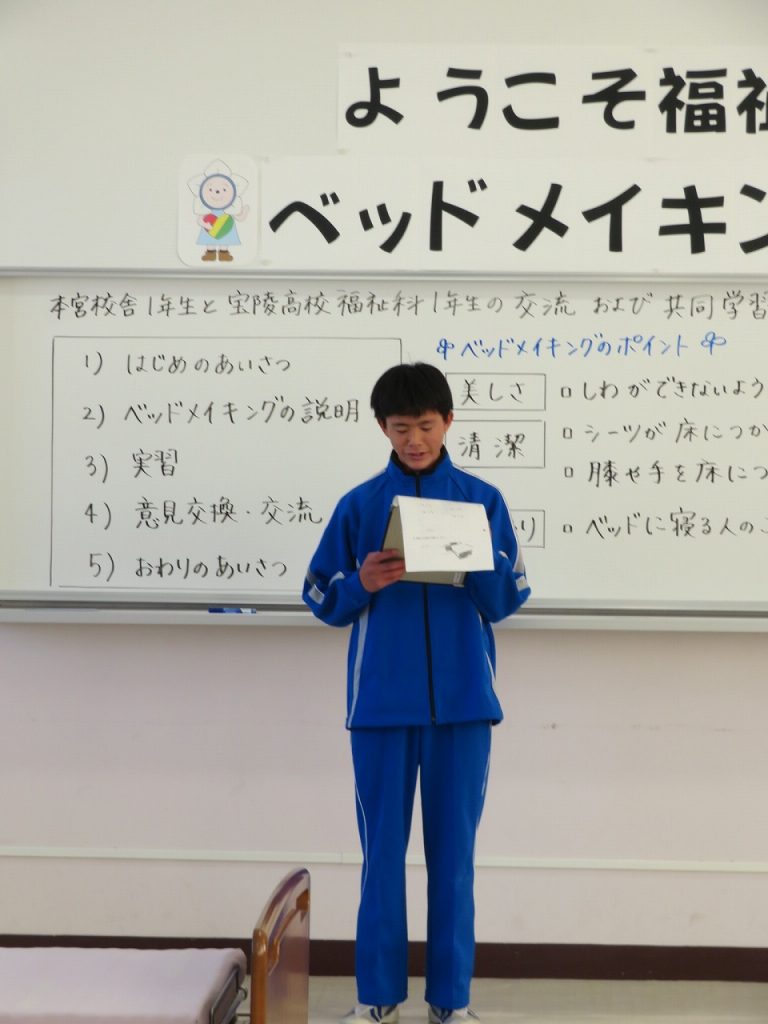 ようこそ福祉
ベッドメイキン
本宮校舎1年生と宝陵高校福祉科1年生の交流および共同学習
1) はじめのあいさつ
2) ベッドメイキングの説明
3) 実習
4) 意見交換・交流
5) おわりのあいさつ
ベッドメイキングのポイント
美しさ
しわができないよう
清潔
シーツが床につか
膝や手を床につ
り
ベッドに寝る人のこ